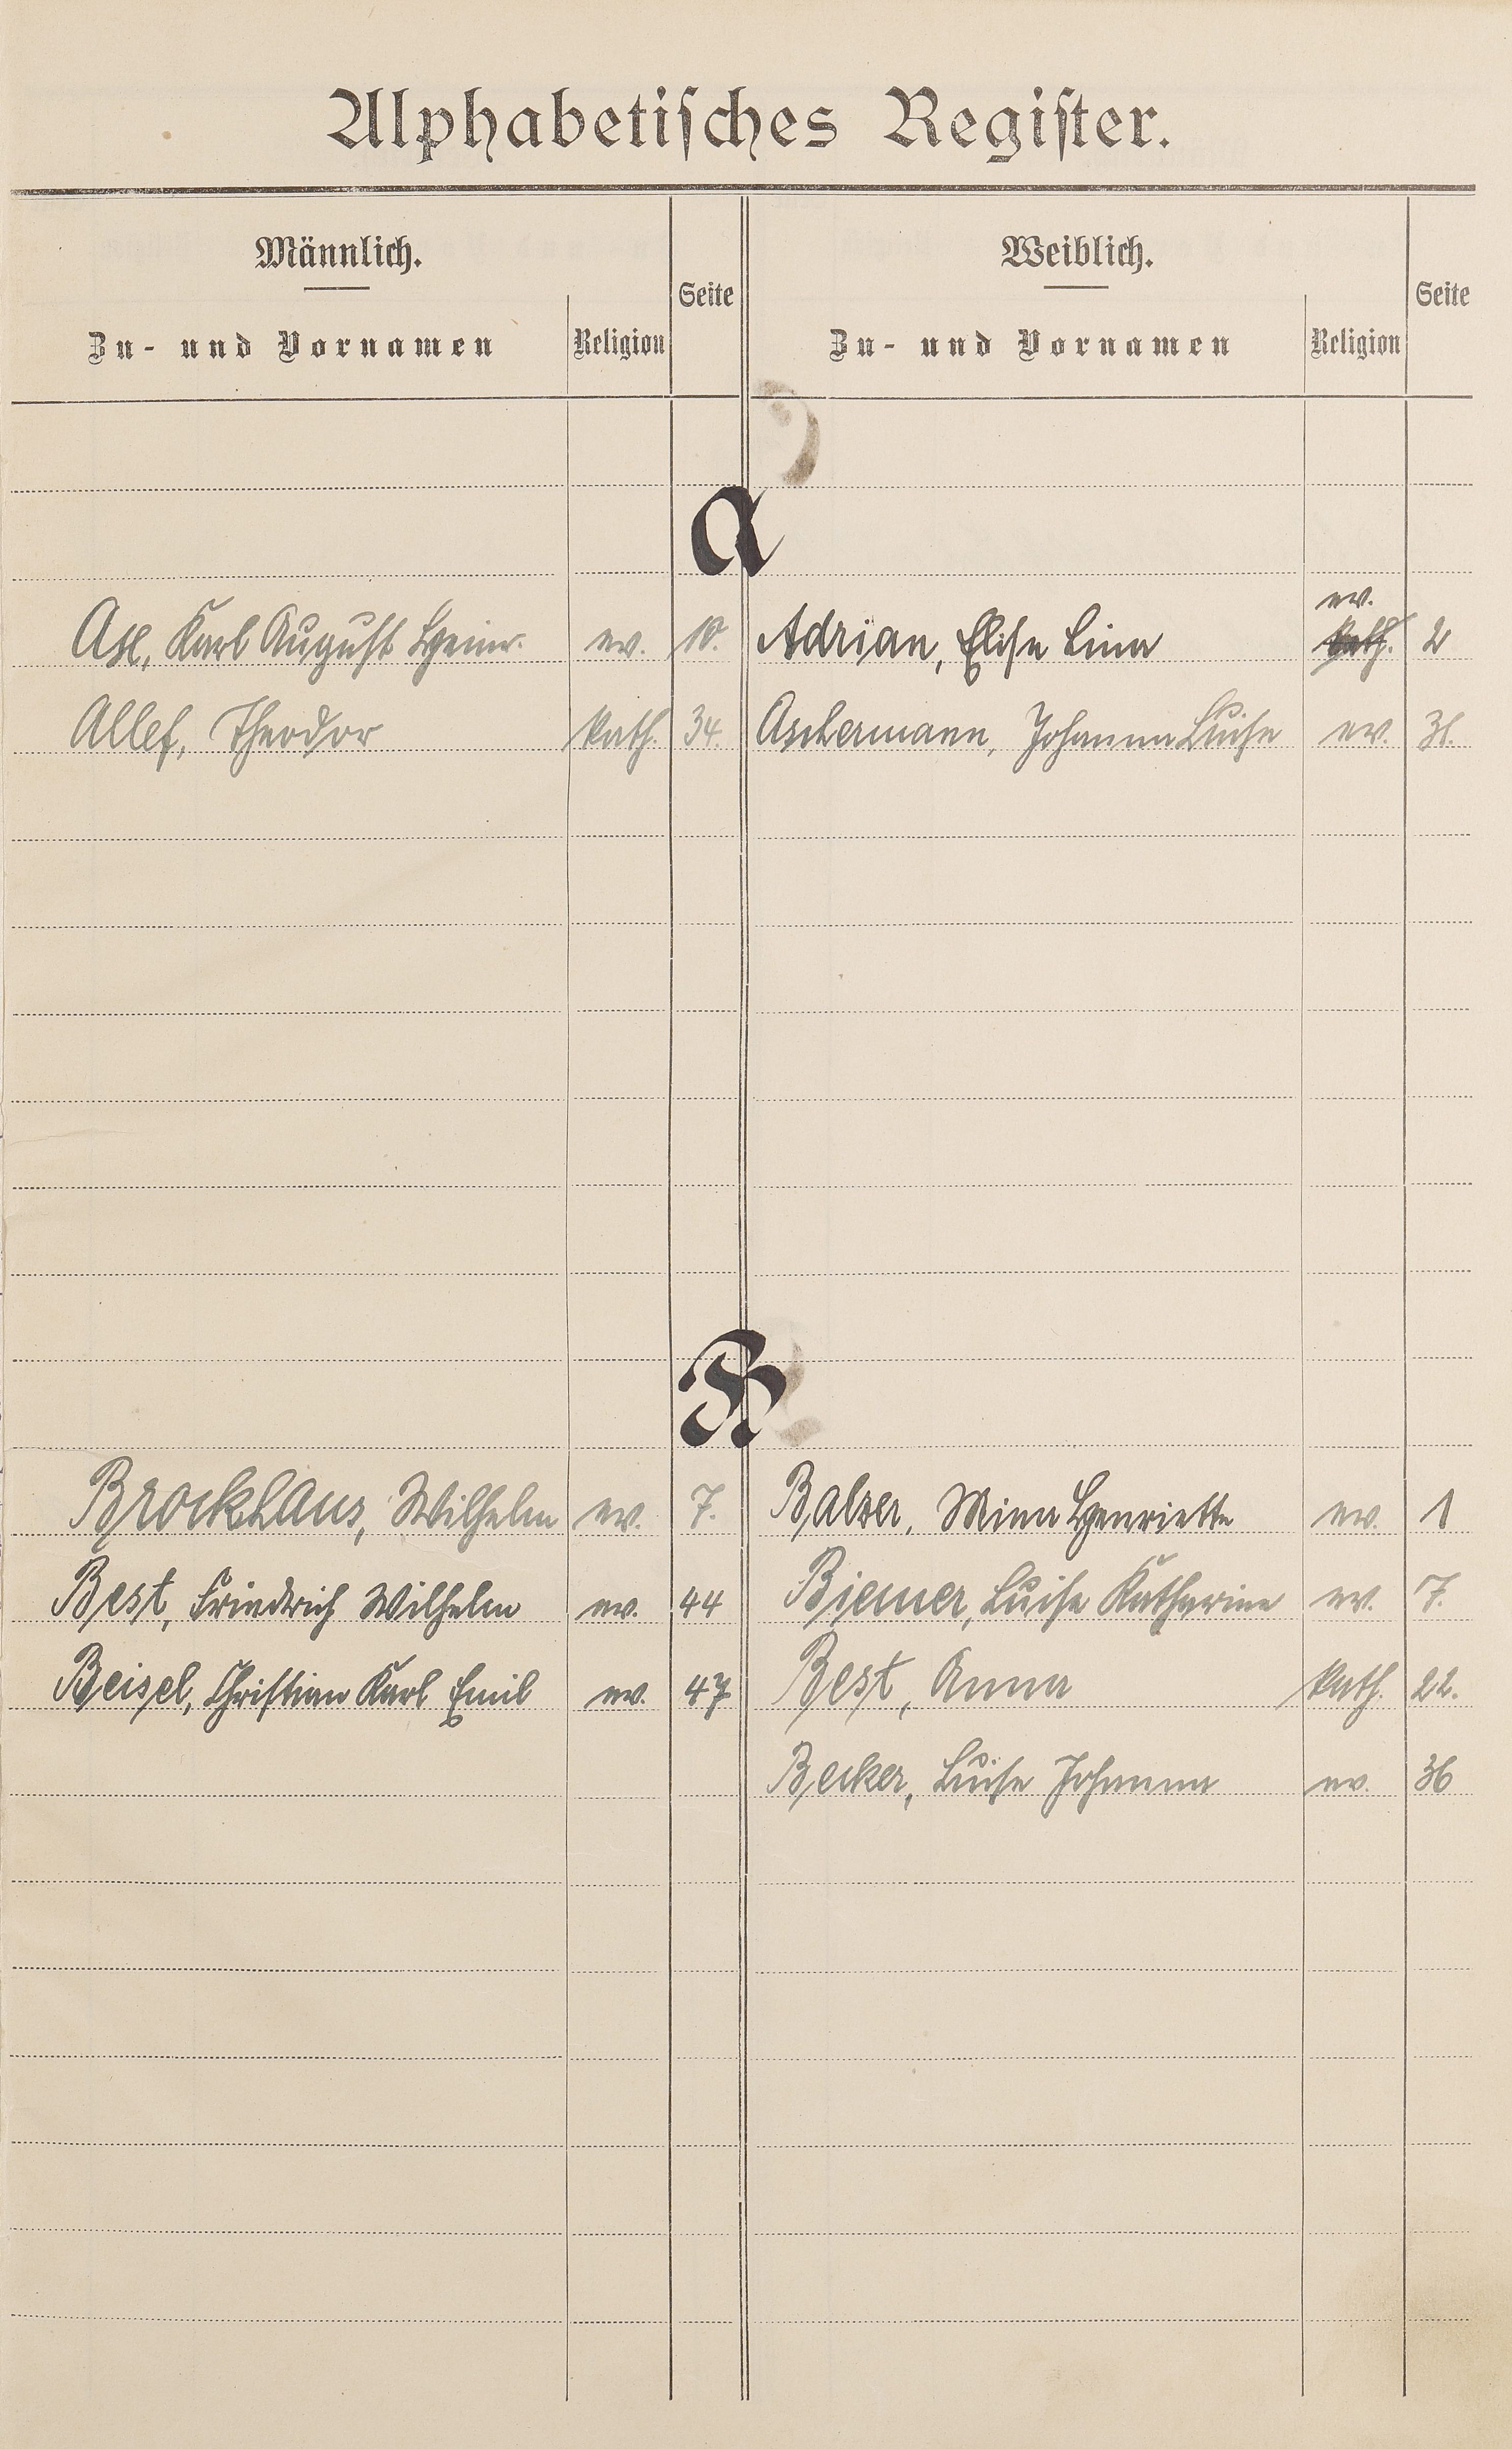 Alphabetisches Register.
Männlich. Weiblich.
Seite Seite
Zu- und Vornamen Religion Zu- und Vornamen Religion
A
ev.
Axl, Karl August Heinr. ev. 10. Adrian, Elise Lina kath. 2
Allef, Theodor kath. 34. Aschermann, Johanna Luise ev. 31.
B
Brockhaus, Wilhelm ev. 7. Balzer, Mina Henriette ev. 1
Best, Friedrich Wilhelm ev. 44 Biemer, Luise Katharine ev. 7.
Beisel, Christian Karl Emil ev. 47 Best, Anna kath. 22.
Becker, Luise Johanna ev. 36